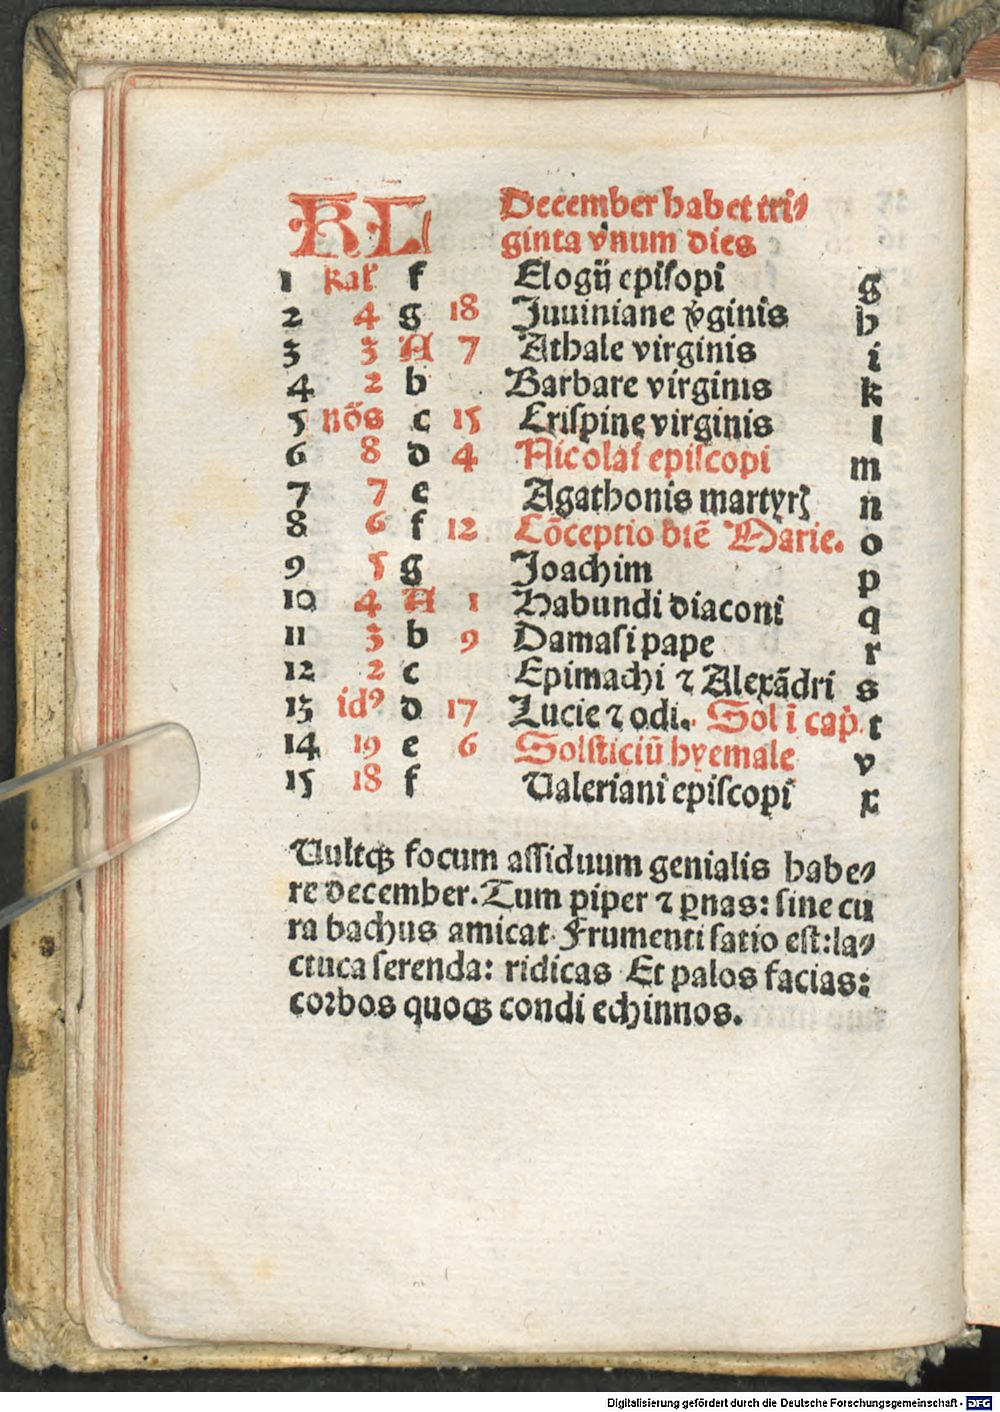 KL December habet tri⸗
ginta vnum dies
1 kal' f Elogij epiſopi g
2 4 g 18 Juuiniane v̓ginis h
3 3 A 7 Athale virginis i
4 2 b Barbare virginis k
5 nōs c 15 Criſpine virginis l
6 8 d 4 Nicolai epiſcopi m
7 7 e Agathonis martyrꝫ n
8 6 f 12 Cōceptio diē Marie. o
9 5 g Joachim p
10 4 A 1 Habundi diaconi q
11 3 b 9 Damaſi pape r
12 2 c Epimachi ⁊ Alexādri s
13 idꝰ d 17 Lucie ⁊ odi. Sol ī cap̓. t
14 19 e 6 Solſticiū hyemale v
15 18 f Ualeriani epiſcopi x
Uultqꝫ focum aſſiduum genialis habe⸗
re december. Tum piper ⁊ ꝑnas: ſine cu
ra bachus amicat. Frumenti ſatio eſt: la⸗
ctuca ſerenda: ridicas Et palos facias:
coꝛbos quoqꝫ condi echinnos.
Digitalisierung gefördert durch die Deutsche Forschungsgemeinschaft - DFG